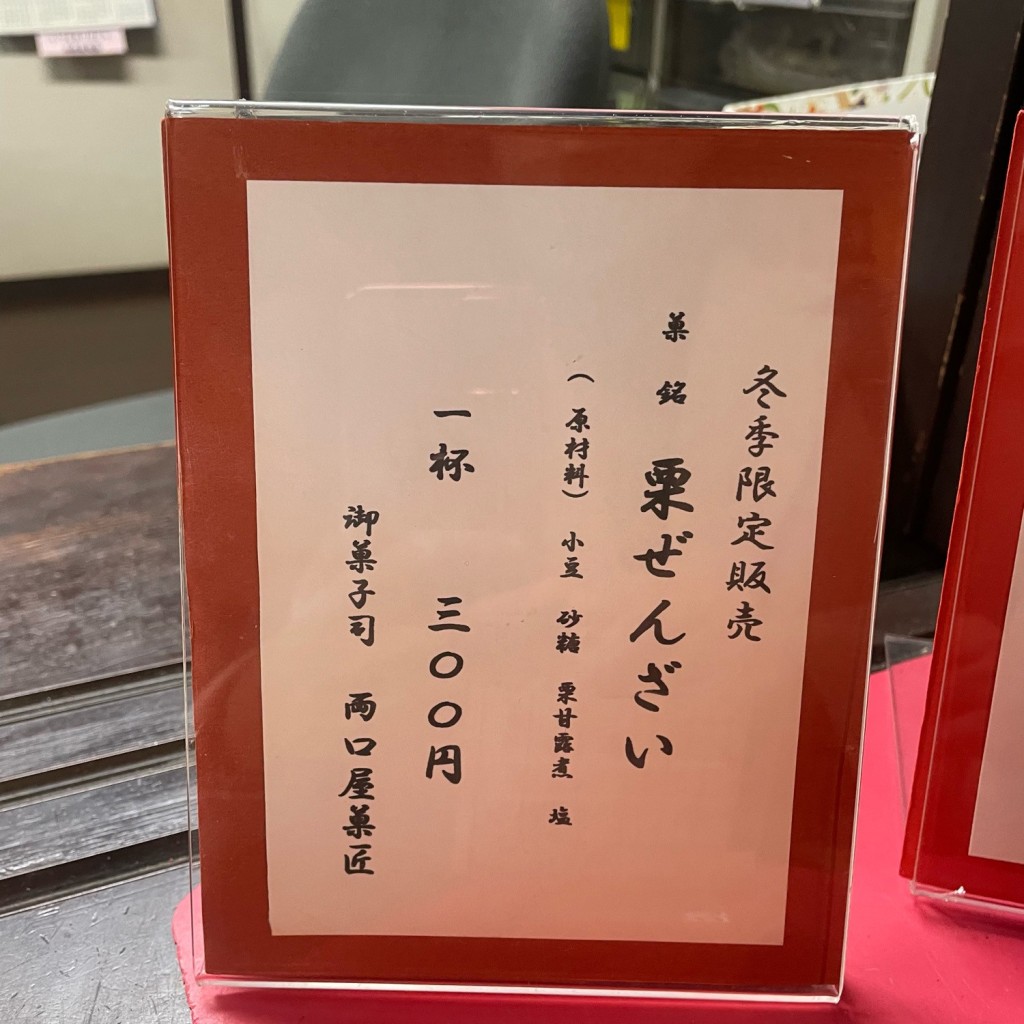 冬季限定販売
菓銘 栗ぜんざい
(原材料) 小豆 砂糖 栗甘露煮 塩
一杯 三〇〇円
御菓子司 両口屋菓匠